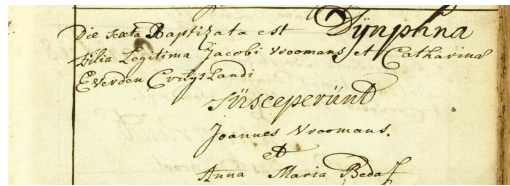 Die sexta Baptizata est Dÿnphna
filia Legitima Jacobi Vroomans et Catharina
Everden
Süsceperünt
Joannes Vroomans.
et
Anna Maria Bedaff